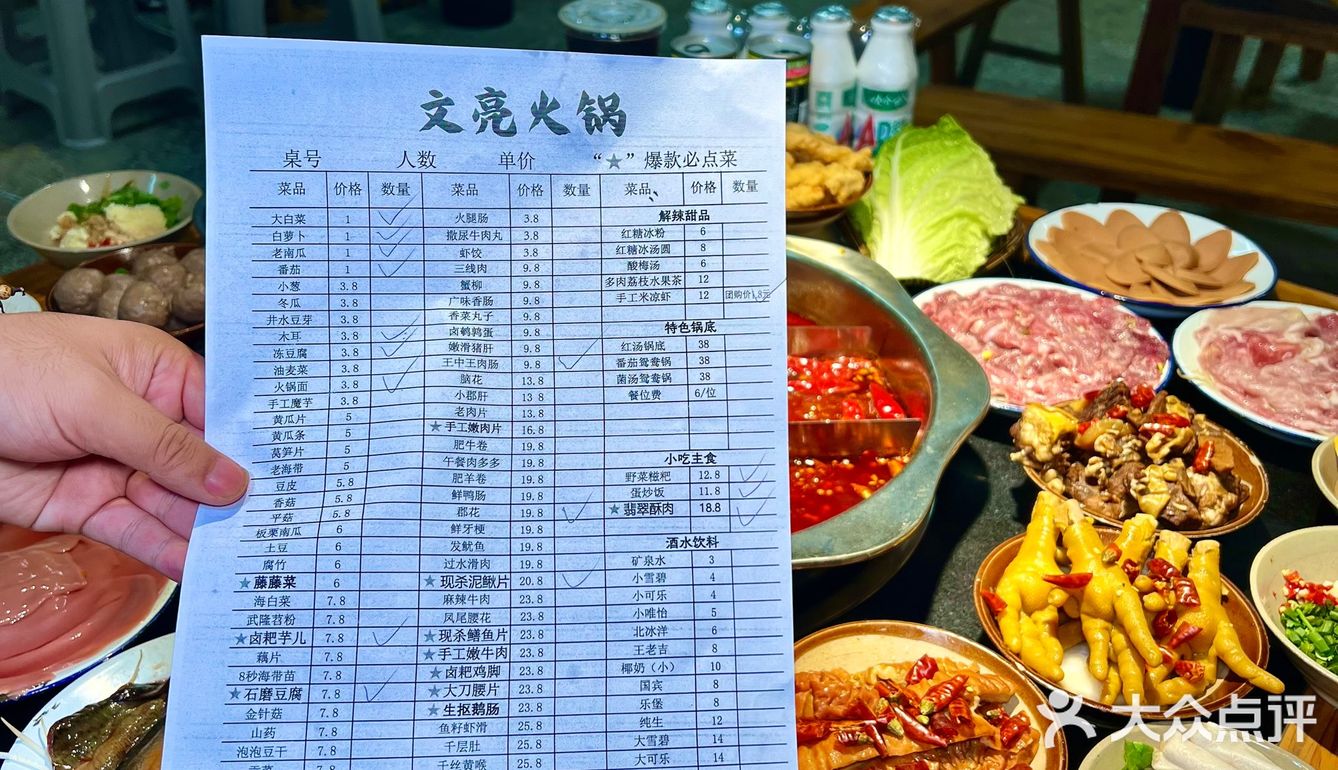 文亮火锅
桌号 人数 单价 “★”爆款必点菜
菜品 价格 数量 菜品 价格 数量 菜品、 价格 数量
大白菜 1 火腿肠 3.8 解辣甜品
白萝卜 1 撒尿牛肉丸 3.8 红糖冰粉 6
老南瓜 1 虾饺 3.8 红糖冰汤圆 8
番茄 1 三线肉 9.8 酸梅汤 6
小葱 3.8 蟹柳 9.8 多肉荔枝水果茶 12
冬瓜 3.8 广味香肠 9.8 手工米凉虾 12 团购价1.8元
井水豆芽 3.8 香菜丸子 9.8
木耳 3.8 卤鹌鹑蛋 9.8 特色锅底
冻豆腐 3.8 嫩滑猪肝 9.8 红汤锅底 38
油麦菜 3.8 王中王肉肠 9.8 番茄鸳鸯锅 38
火锅面 3.8 脑花 13.8 菌汤鸳鸯锅 38
手工魔芋 3.8 小郡肝 13.8 餐位费 6/位
黄瓜片 5 老肉片 13.8
黄瓜条 5 ★手工嫩肉片 16.8
莴笋片 5 肥牛卷 19.8
老海带 5 午餐肉多多 19.8 小吃主食
豆皮 5.8 肥羊卷 19.8 野菜糍粑 12.8
香菇 5.8 鲜鸭肠 19.8 蛋炒饭 11.8
平菇 5.8 郡花 19.8 ★翡翠酥肉 18.8
板栗南瓜 6 鲜牙梗 19.8
土豆 6 发鱿鱼 19.8 酒水饮料
腐竹 6 过水滑肉 19.8 矿泉水 3
★藤藤菜 6 ★现杀泥鳅片 20.8 小雪碧 4
海白菜 7.8 麻辣牛肉 23.8 小可乐 4
武隆苕粉 7.8 凤尾腰花 23.8 小唯怡 5
★卤耙芋儿 7.8 ★现杀鳝鱼片 23.8 北冰洋 6
藕片 7.8 ★手工嫩牛肉 23.8 王老吉 8
8秒海带苗 7.8 ★卤耙鸡脚 23.8 椰奶（小） 10
★石磨豆腐 7.8 ★大刀腰片 23.8 国宾 8
金针菇 7.8 ★生抠鹅肠 23.8 乐堡 8
山药 7.8 鱼籽虾滑 25.8 纯生 12
泡泡豆干 7.8 千层肚 25.8 大雪碧 14
7.8 千丝黄喉 25.8 大可乐 14
大众点评